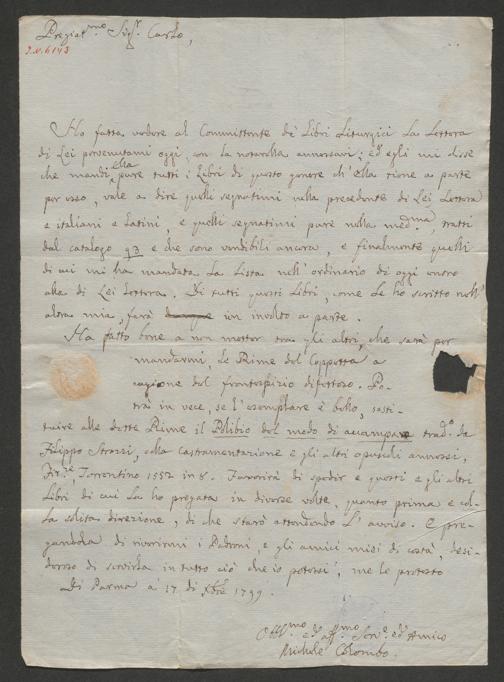 Pregiat.mo Sig.r Carlo,
I.N.6143
Ho fatta vedere al Committente de' Libri Liturgici la Lettera
di Lei pervenutami oggi, con la notarella annessavi; ed egli mi disse
che mandi ella pure tutti i Libri di questo genere ch'ella tiene a parte
per esso, vale a dire quelli segnatimi nella precedente di Lei Lettera
e italiani e Latini, e quelli segnatimi pure nella med.ma tratti
dal catalogo 93 e che sono vendibili ancora, e finalmente quelli
di cui mi ha mandata la Lista nell'ordinario di oggi entro
alla di Lei Lettera. Di tutti questi Libri, come Le ho scritto nell'
altra mia, farà un involto a parte.
Ha fatto bene a non metter tra gli altri, che sarà per
mandarmi, le Rime del Coppetta a
cagione del frontespizio difettoso. Po-
trà in vece, se l'esemplare è bello, sosti-
tuire alle dette Rime il Polibio del modo di accampare trad.o da
Filippo Strozzi, colla castramentazione e gli altri opuscoli annessi,
Fir.ze Torrentino 1552 in 8. Favorirà di spedir e questi e gli altri
Libri di cui La ho pregata in diverse volte, quanto prima e col-
la solita direzione, di che starò attendendo l'avviso. E pre-
gandola di riverirmi i Padroni, e gli amici miei di costà, desi-
deroso di servirla in tutto ciò che io potessi, me le protesto
Di Parma a' 17 di Xbre 1799.
Obb.mo ed aff.mo Serv.e ed Amico
Michele Colombo.